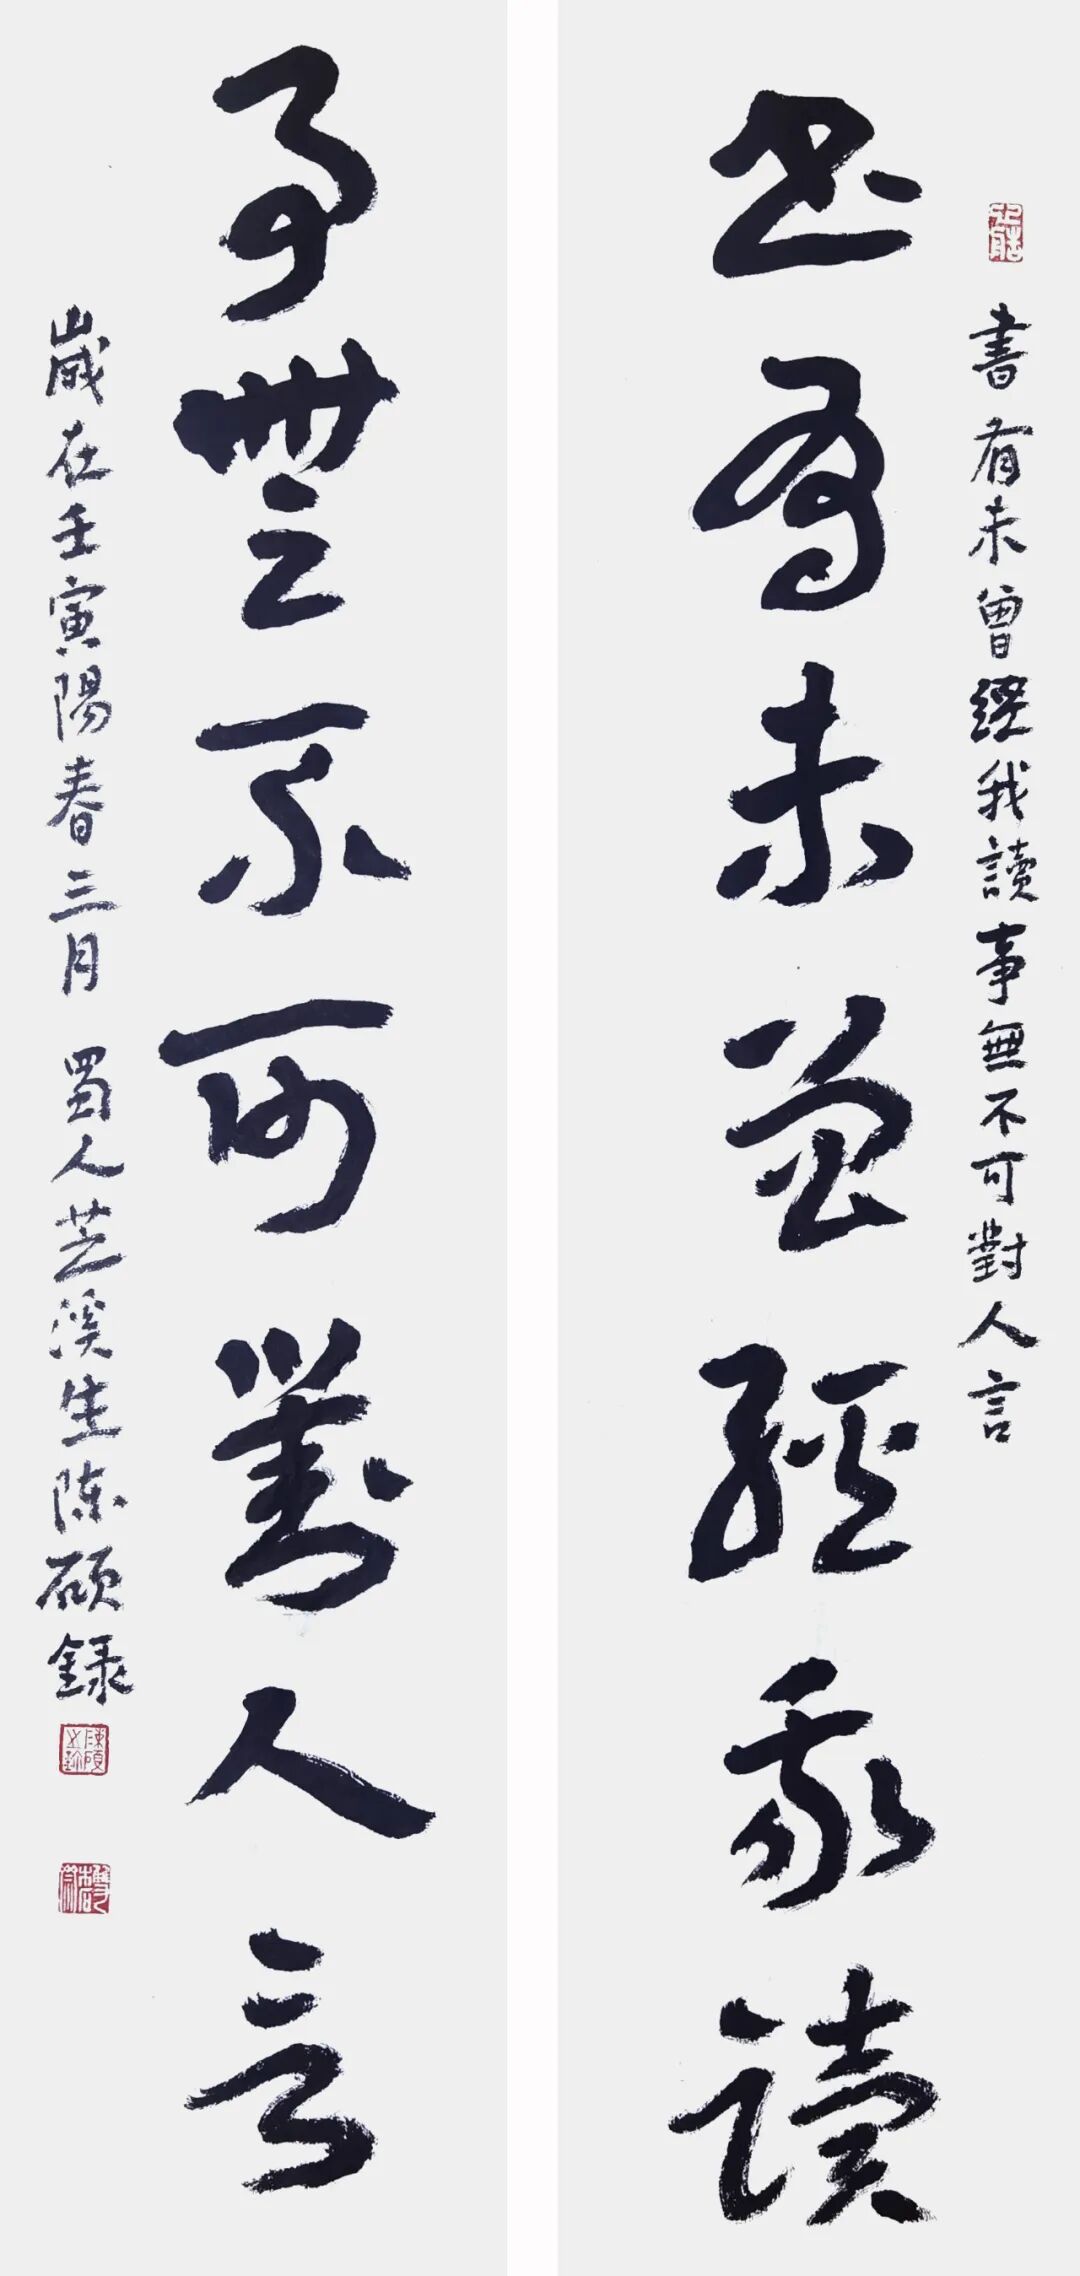 書有未曾經我讀事無不可對人言
书有未曾經我讀
事無不可對人言
歲在壬寅陽春三月 蜀人芝溪生陈碩錄